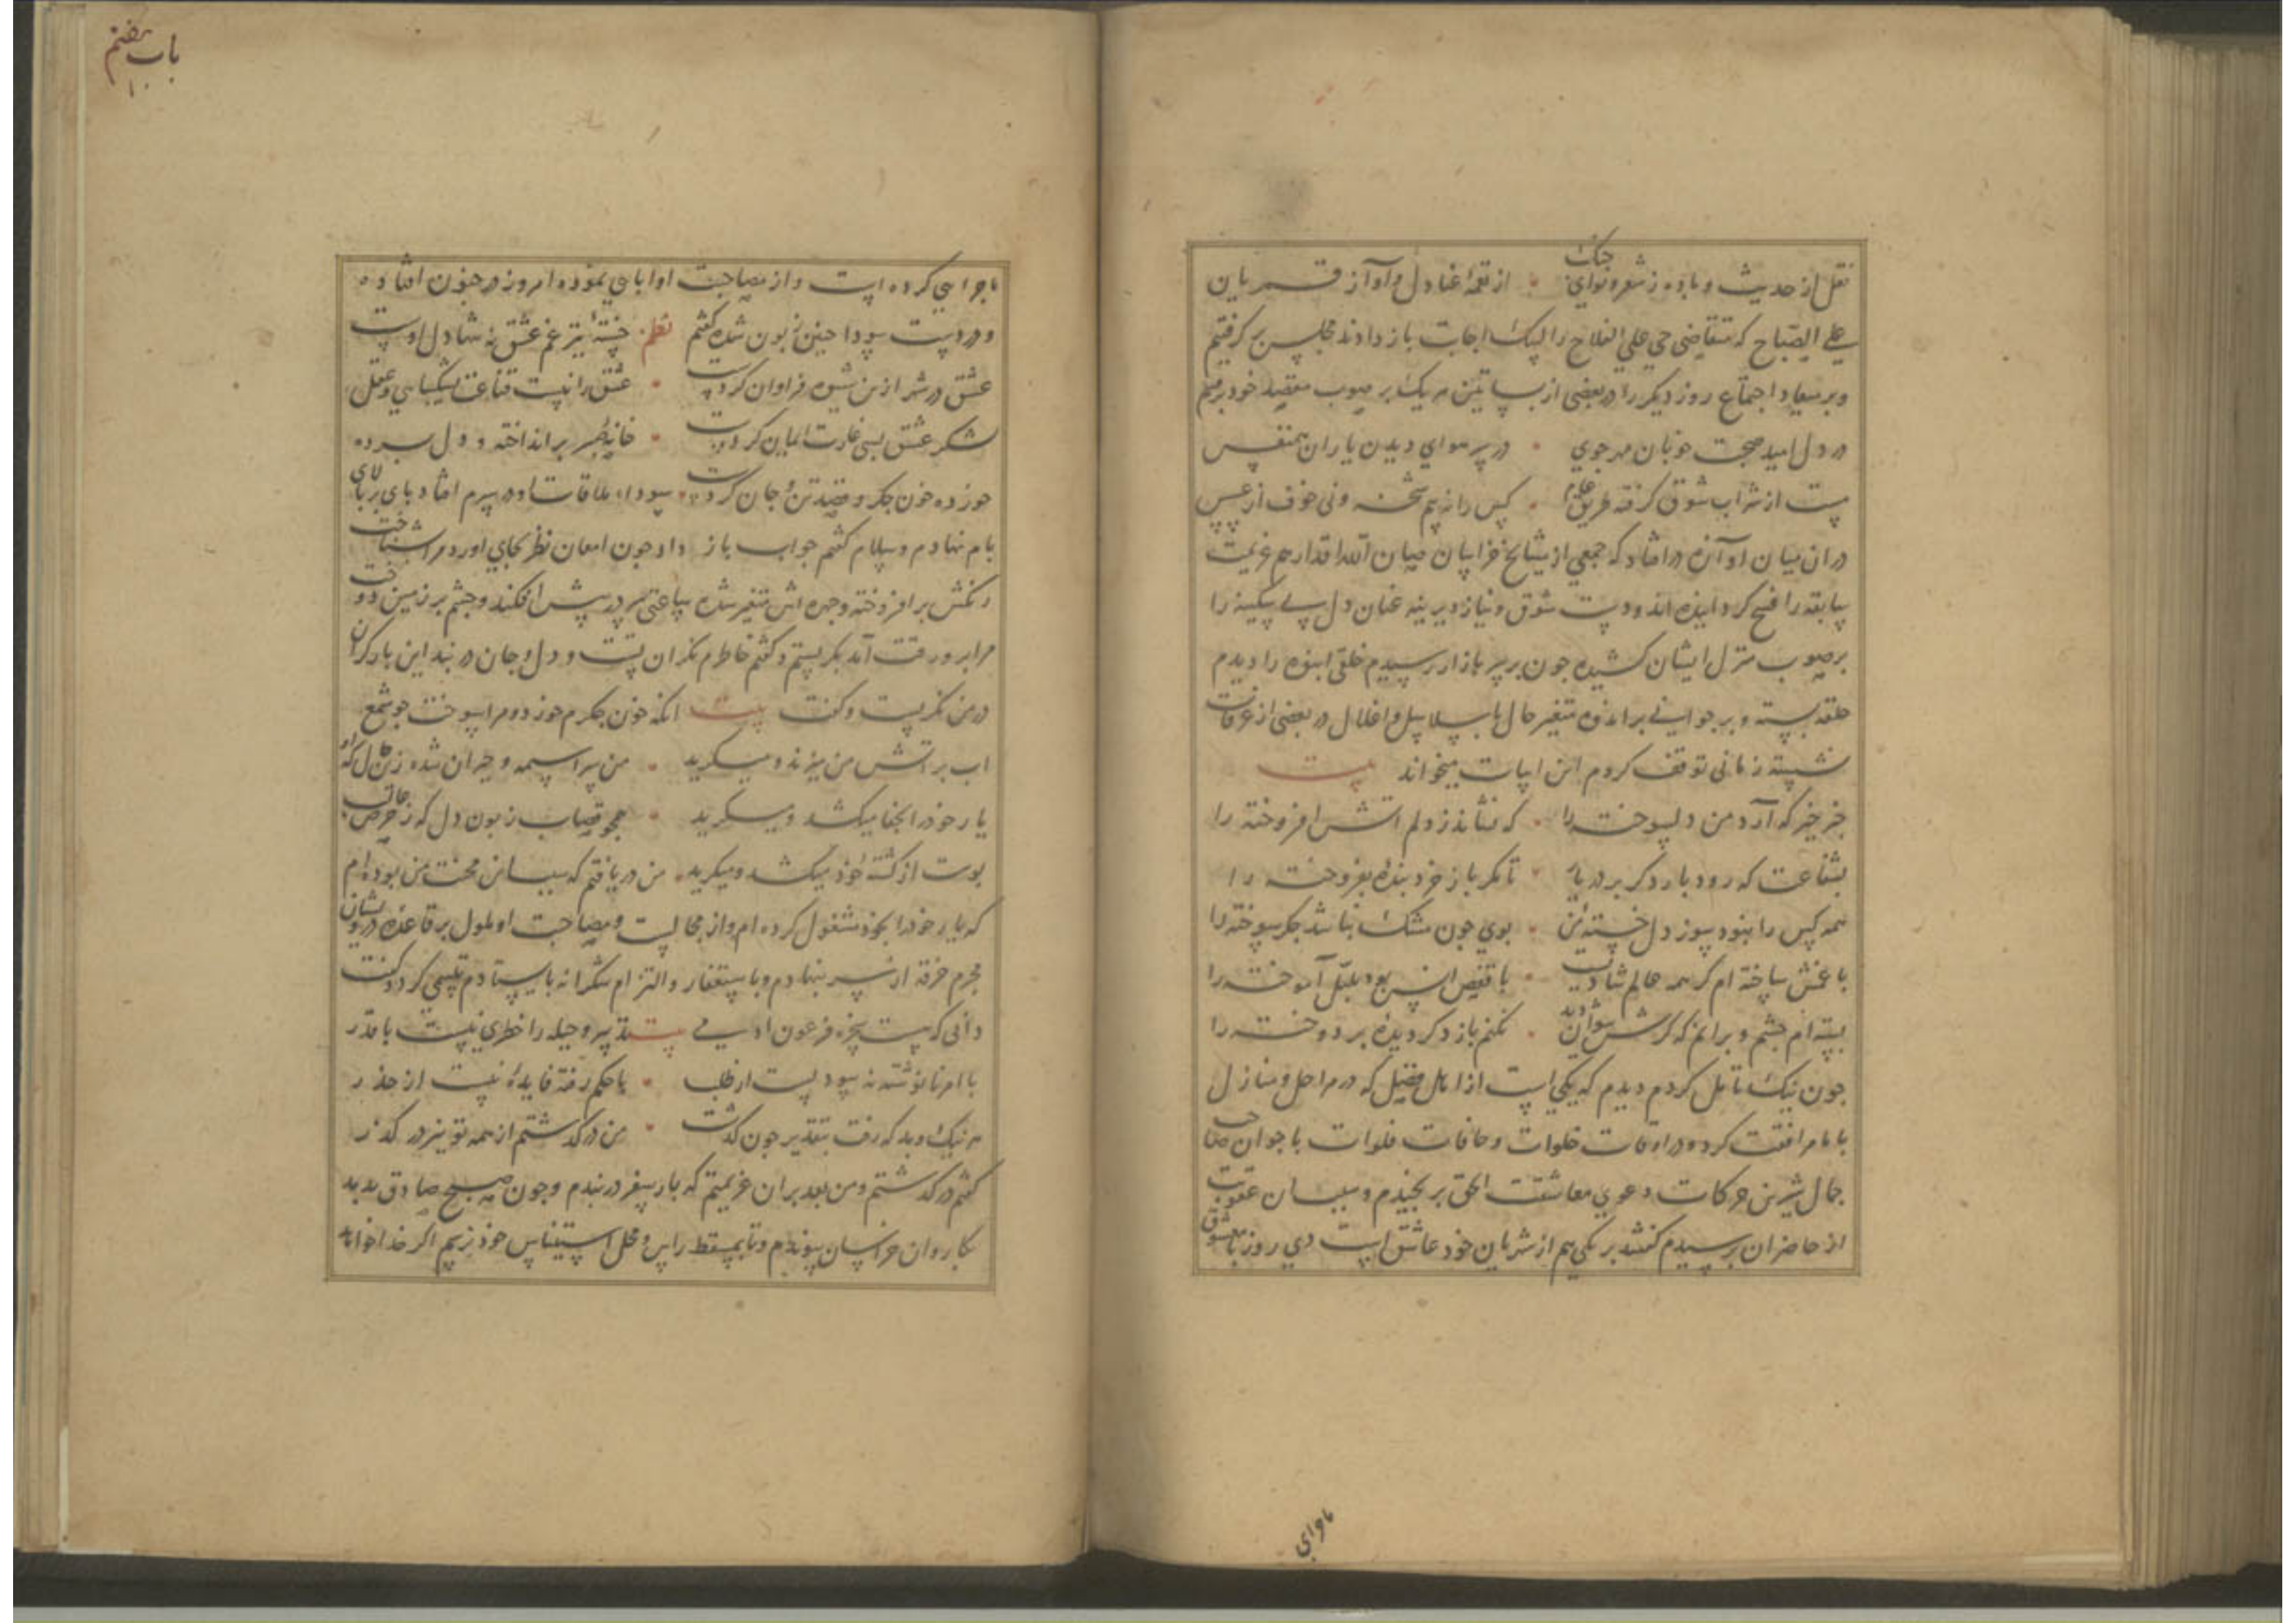 نقل از حدیث و باده ز شعر و نوای جنک از نغمهٔ عنادل و آواز قسریان
علی الصباح که متقاضی حی علی الفلاح را لبیک اجابت باز دادند مجلس برگرفتیم
و بر میعاد اجتماع روز دیکر را در بعضی از بساتین هر یک بر صوب مقصد خود برفتیم
در دل امید صحبت خوبان مهرجوی در سر هوای دیدن یاران همنفس
مست از شراب شوق گرفته طریق کس را نه بیم شحنه و نی خوف از عسس
در ان میان اوازه در افتاد که جمعی از مشایخ خراسان صیان الله اقدارهم عزیمت
سابقه را فسخ کردانیده اند و دست شوق و نیاز دیرینه عنان دل بی سکینه را
بر صوب منزل ایشان کشیده چون بر سر بازار رسیدم خلقی انبوه را دیدم
حلقه بسته و بر جوانی براندوه متغیر حال با سلاسل و اغلال در بعضی از غرفات
نشسته زمانی توقف کردم این ابیات میخواند بیت
جز خبر که آرد من دلسوخته را که نشاند ز دلم اتش افروخته را
بشفاعت که رود بار دکر بر در یار تا مکر باز خرد بندهٔ بفروخته را
همه کس را نبود سوز دل خستهٔ من بوی چون مشک نباشد جکر سوخته را
با غمش ساخته ام کر همه عالم شادیست با قفص انس بود بلبل آموخته را
بسته ام چشم و برانم که کرش نتوان دید نکنم باز دکر دیدهٔ بر دوخته را
چون نیک تامل کردم دیدم که یکی است از اهل فضل که در مراحل و منازل
با ما مرافقت کرده و در اوقات خلوات و حافات فلوات با جوان صاحب
جمال شیرین حرکات دعوی معاشقت الحق برنجیدم و سبب ان عقوبت
از حاضران برسیدم کفتند بر یکی هم از شهریان خود عاشق است دی روز با معشوق
ماجرایی
باب هفتم
۱۰
ماجرایی کرده است و از مصاحبت او ابایی نموده و امروز در جنون افتاده
و در دست سودا چنین زبون شده گفتم نظم خستهٔ تیر غم عشق نه شادل اوست
عشق در شهر ازین شیوه فراوان کردست عشق را نیست قناعت بشکیبایی و عقل
لشکر عشق بسی غارت ایمان کردست خانهٔ صبر برانداخته و دل برده
خورده خون جکر و قصد تن و جان کردست سوداء ملاقات او در سرم افتاد بای بر بالای
بام نهادم و سلام کفتم جواب باز داد چون امعان نظر بجای اورد مرا بشناخت
رنکش برافروخته و چهره اش متغیر شده ساعتی سر در پیش افکند و چشم بر زمین دوخت
مرا برو رقت آمد بکریستم و کفتم خاطرم نکران تست و دل و جان در بند این بار کران
در من نکریست و کفت بیت انکه خون جکرم خورد و مرا سوخت جو شمع
اب بر اتش من میزند و میکرید من سراسیمه و حیران شده زان دل که او
یار خود را بجفا میکشد و میکرید همچو قصاب زبون دل که ز حرص
بوست از کشتهٔ خود میکشد و میکرید من دریافتم که سبب ان محنت من بوده ام
که یار خود را بخود مشغول کرده ام و از مجالست و مصاحبت او ملول بر قاعدهٔ درویشان
مجرم خرقه از سر بنهادم و باستغفار و التزام شکرانه بایستادم تبسمی کرد و کفت
دانی که بیت تدبیر و حیله را خطری نیست با قدر
با امر نانوشته نه سودیست از طلب با حکم رفته فایدهٔ نیست از حذر
هر نیک و بد که رفت بتقدیر چون کذشت من در کذشتم از همه تو نیز در کذر
کفتم در کذشتم و من بعد بران عزیمتم که بار سفر در بندم و چون صبح صادق بدمد
بکاروان خراسان بیوندم و تا بمسقط راس و محل استیناس خود برسم اکر خدا خواهد